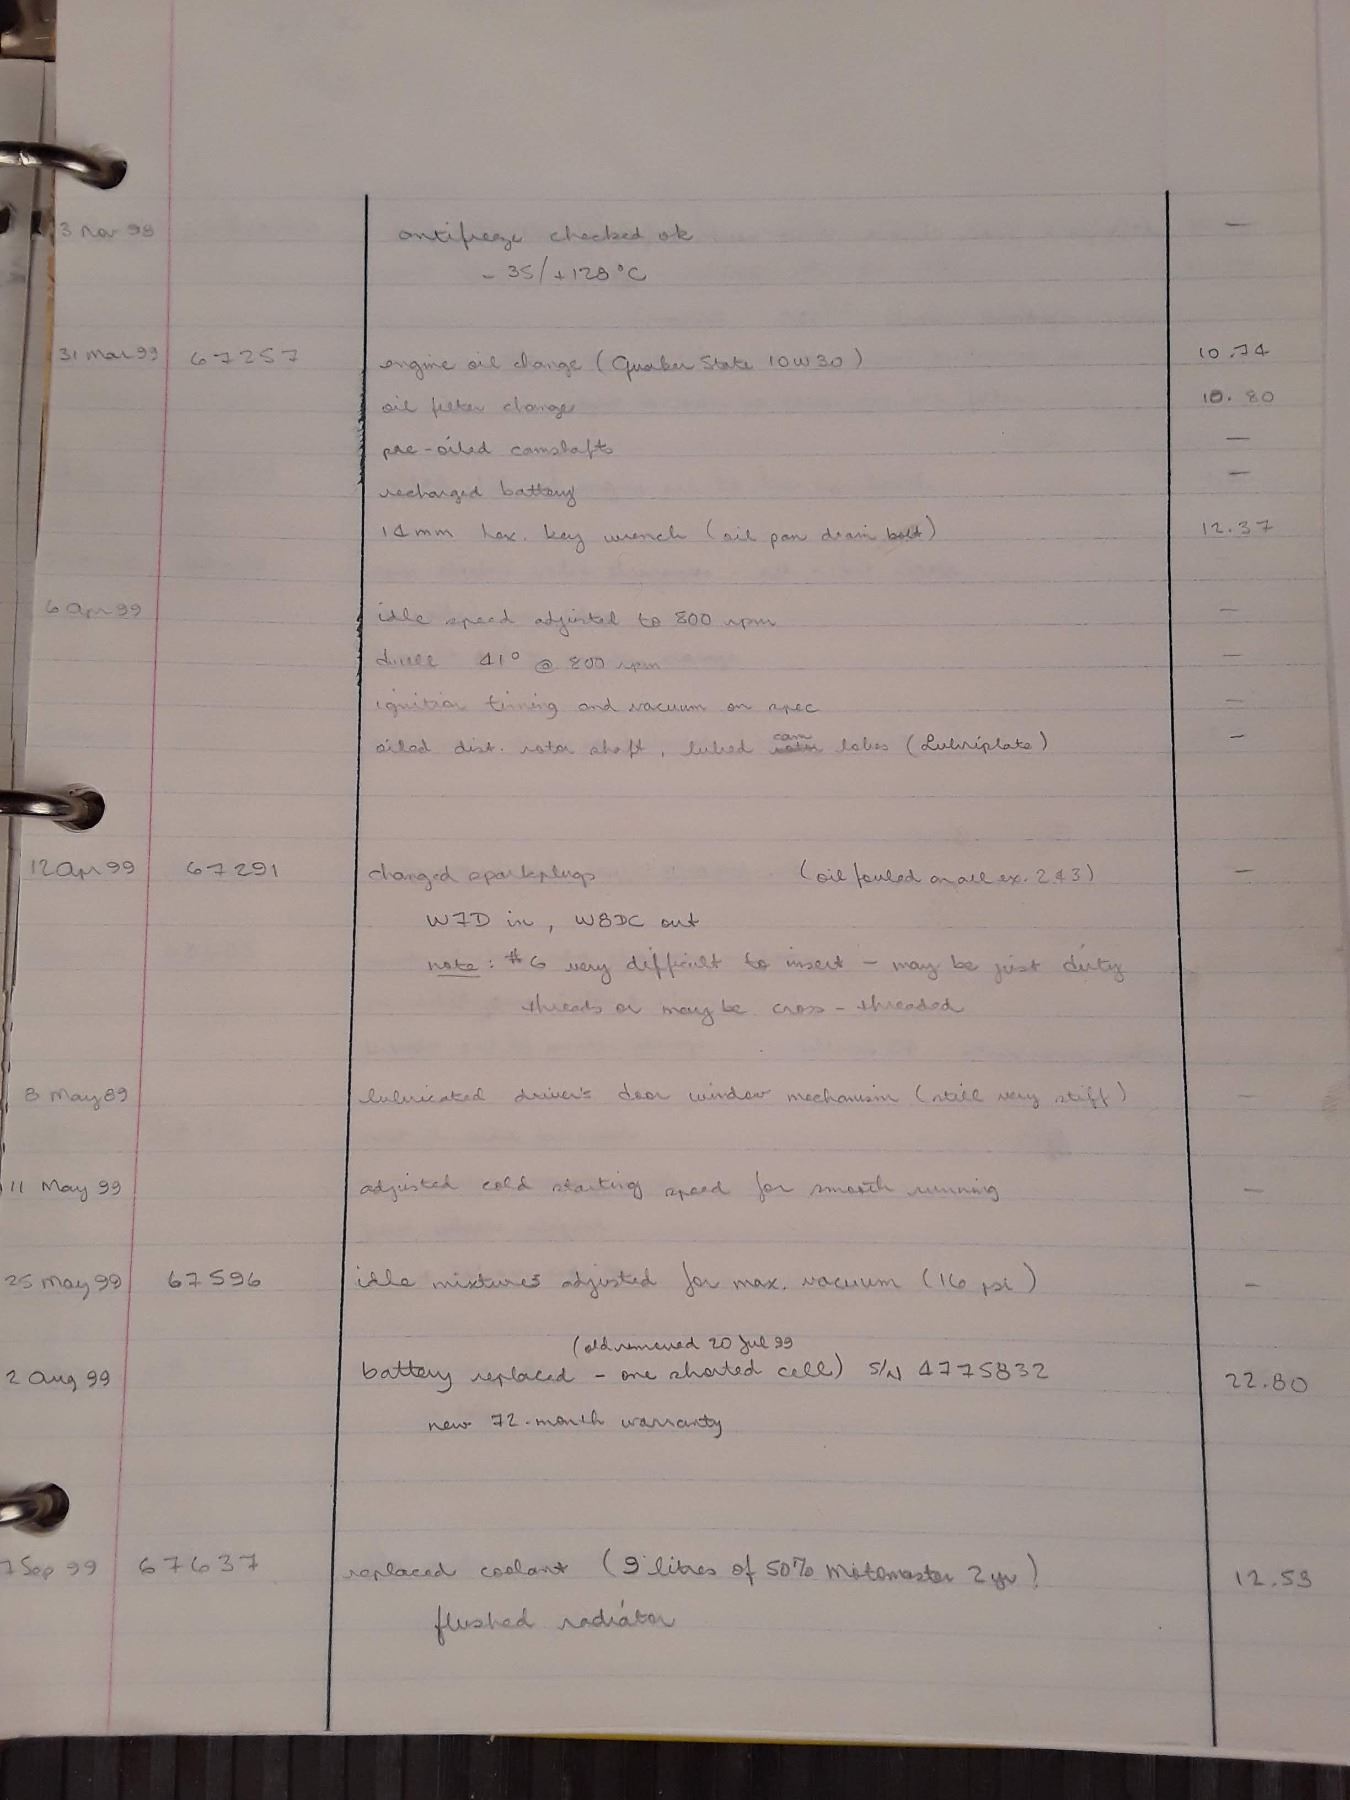 3 Nov 98 antifreeze checked ok —
- 35/+128°C
31 Mar 99 67257 engine oil change (Quaker State 10W30) 10.74
oil filter change 10.80
pre-oiled camshafts —
recharged battery —
14mm hex. key wrench (oil pan drain bolt) 12.37
6 Apr 99 idle speed adjusted to 800 rpm —
dwell 41° @ 800 rpm —
ignition timing and vacuum on spec —
cam
oiled dist. rotor shaft, lubed rotor lobes (Lubriplate) —
12 Apr 99 67291 changed sparkplugs (oil fouled on all ex. 2 & 3) —
W7D in, W8DC out
note: #6 very difficult to insert - may be just dirty
threads or may be cross-threaded
8 May 89 lubricated driver's door window mechanism (still very stiff) —
11 May 99 adjusted cold starting speed for smooth running —
25 May 99 67596 idle mixtures adjusted for max. vacuum (16 psi) —
(old removed 20 Jul 99
2 Aug 99 battery replaced - one shorted cell) S/N 4775832 22.80
new 72-month warranty
7 Sep 99 67637 replaced coolant (9 litres of 50% Motomaster 2 yr) 12.53
flushed radiator